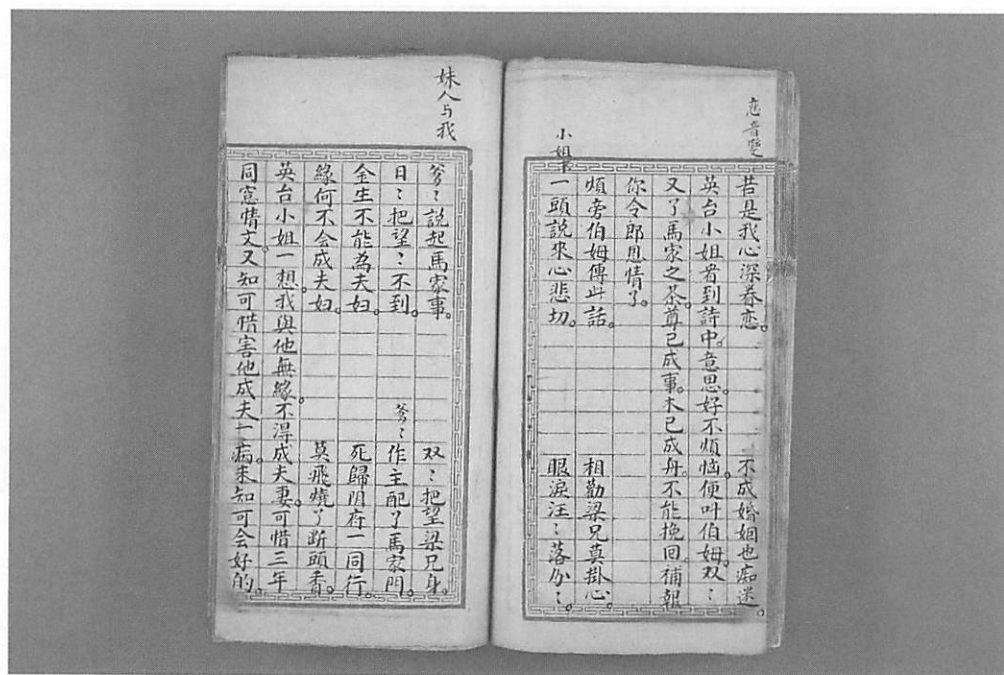 恋音雙
若是我心深眷恋。 不成婚姻也痴迷。
英台小姐看到詩中。意思。好不煩恼。便叫伯姆。双：
又了馬家之茶。尊已成事。木已成舟。不能挽回。補報
你令郎恩情了。
煩旁伯姆傳此話。 相勸梁兄莫掛心。
小姐
一頭說來心悲切。 眼淚汪：落分：。
妹人与我
爹：說起馬家事。 双：把望梁兄身。
日：把望：不到。 爹：作主配了馬家門。
金生不能為夫妇。 死歸阴府一同行。
緣何不会成夫妇。 莫飛燒了断頭香。
英台小姐一想。我與他無緣。不淂成夫妻。可惜三年
同窓情文。又知可惜害他成夫一病。未知可会好的。